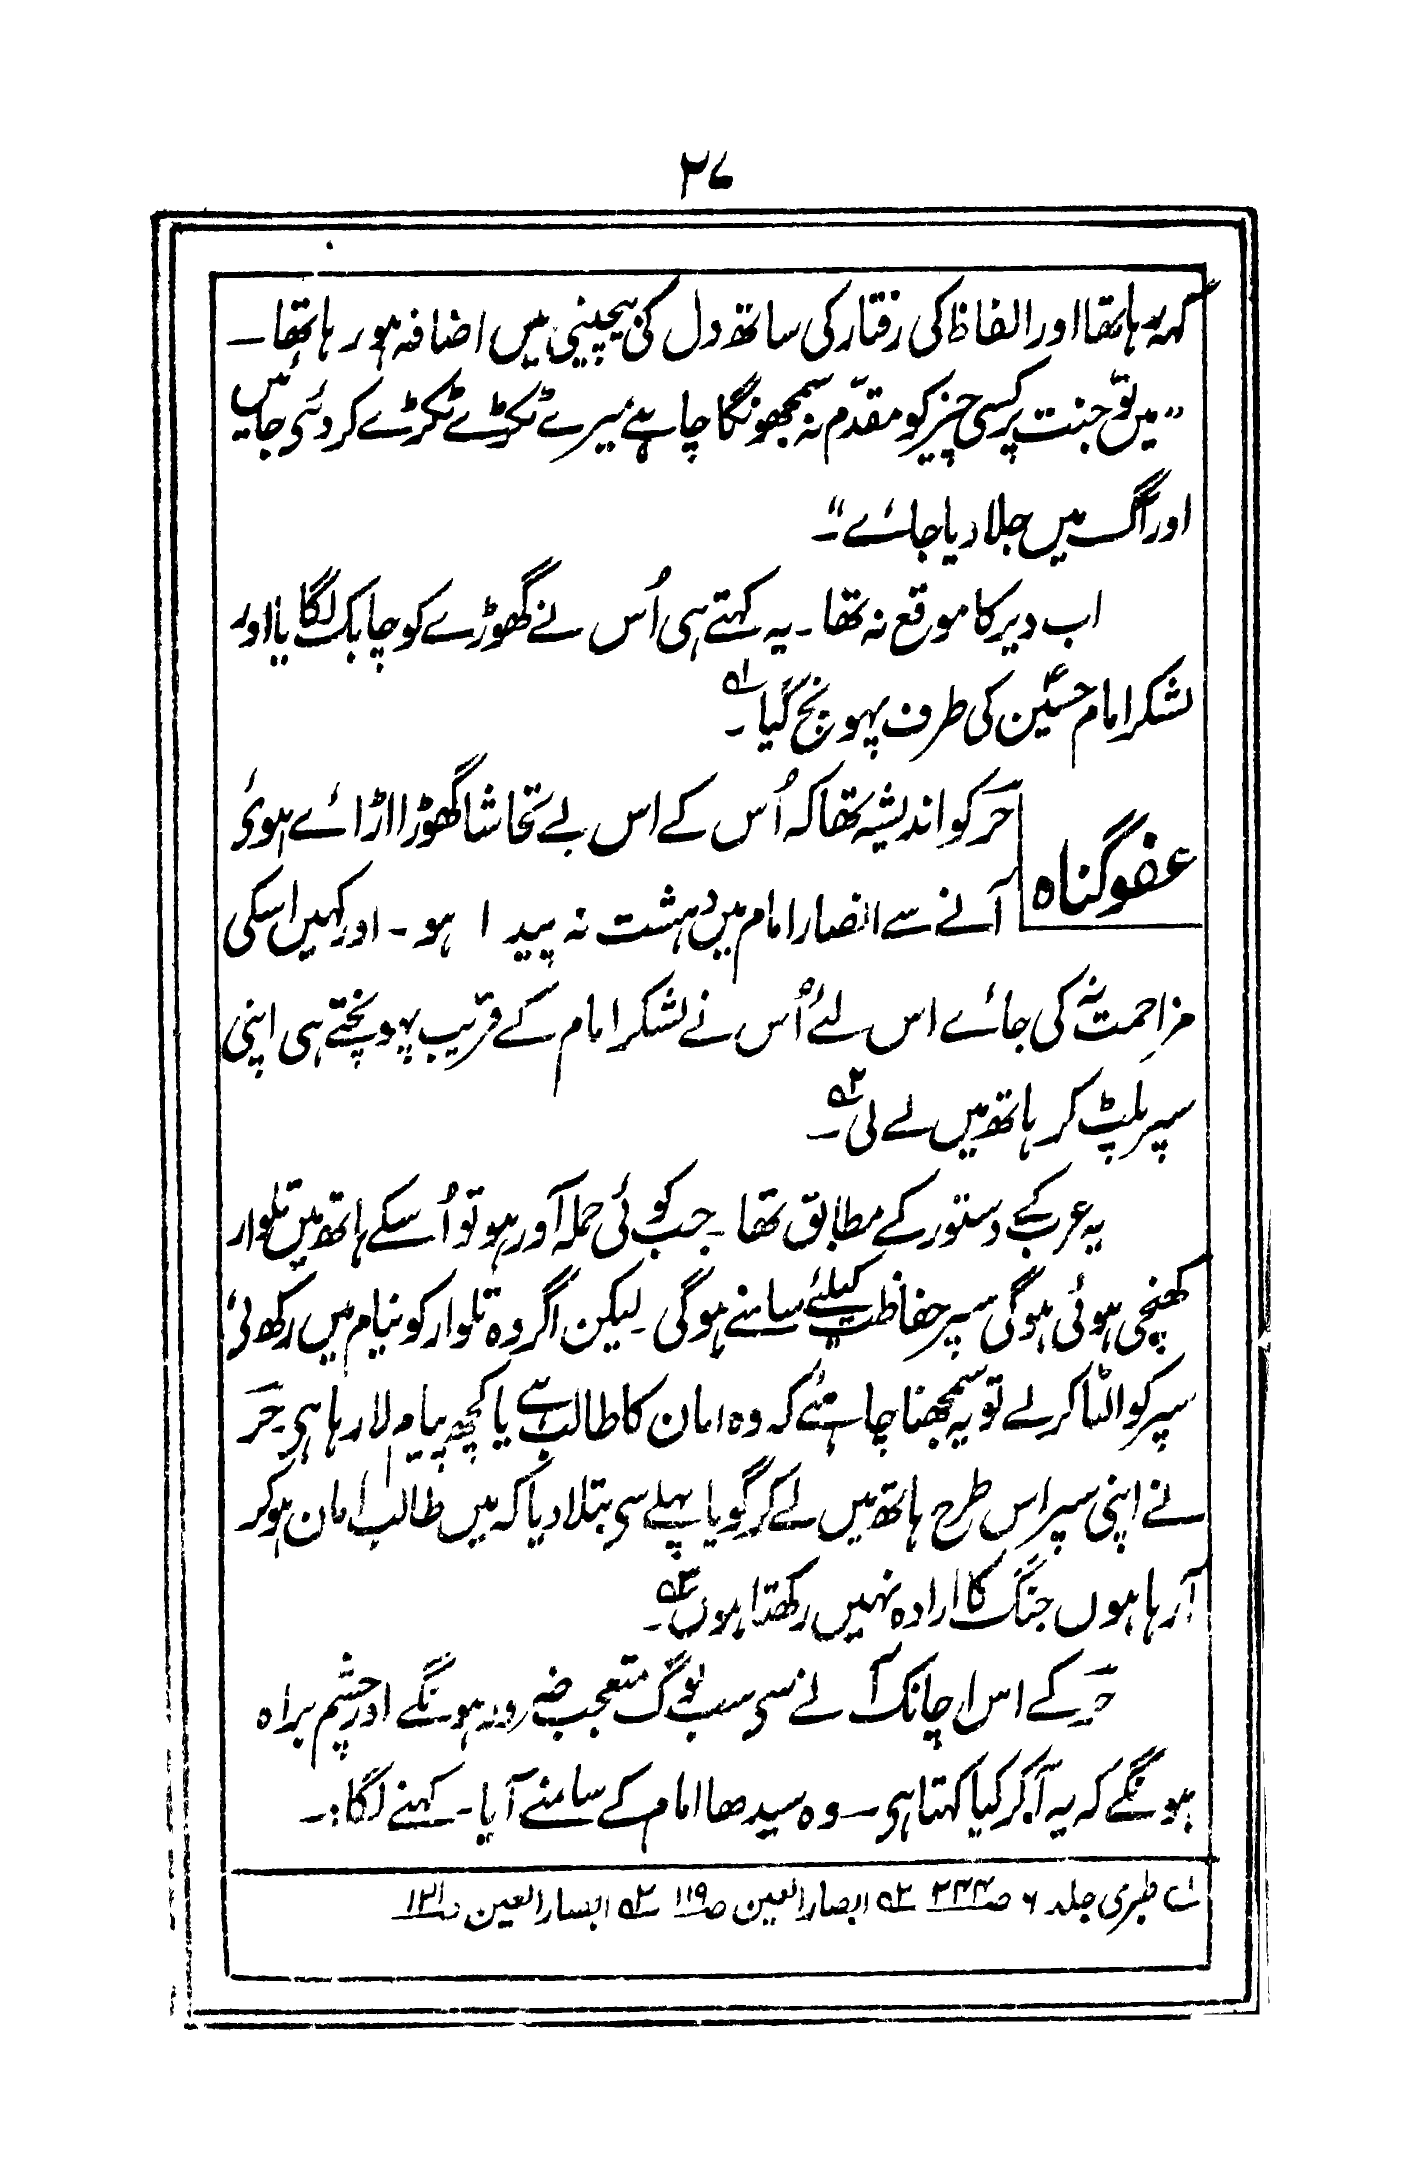 ۲۷
کہہ رہا تھا اور الفاظ کی رفتار کی ساتھ دل کی بیچینی میں اضافہ ہو رہا تھا ـ
"میں تو جنت پر کسی چیز کو مقدّم نہ سمجھونگا چاہے میرے ٹکڑے ٹکڑے کر دئی جائیں
اور آگ میں جلا دیا جائے" ـ
اب دیر کا موقع نہ تھا ـ یہ کہتے ہی اُس نے گھوڑے کو چابک لگایا اور
لشکر امام حسینؑ کی طرف پہونچ گیا ۱؎ ـ
عفو گناہ
حُر کو اندیشہ تھا کہ اُس کے اس بے تحاشا گھوڑا اڑائے ہوئ
آنے سے انصار امام میں دہشت نہ پیدا ہو ـ اور کہیں اسکی
مزاحمت نہ کی جائے اس لئے اُس نے لشکر امام کے قریب پہونچتے ہی اپنی
سپر پلٹ کر ہاتھ میں لے لی ۲؎ ـ
یہ عرب کے دستور کے مطابق تھا ـ جب کوئی حملہ آور ہو تو اُسکے ہاتھ میں تلوار
کھنچی ہوئی ہوگی سپر حفاظت کیلئے سامنے ہوگی ـ لیکن اگر وہ تلوار کو نیام میں رکھ لئ
سپر کو الٹا کر لے تو یہ سمجھنا چاہئے کہ وہ امان کا طالب ہے یا کچھ پیام لا رہا ہی ـ حُر
نے اپنی سپر اس طرح ہاتھ میں لے کر گویا پہلے سی بتلا دیا کہ میں طالب امان ہو کر
آ رہا ہوں جنگ کا ارادہ نہیں رکھتا ہوں ۳؎ ـ
حُر کے اس اچانک آنے سی سب لوگ متعجب ضرور ہونگے اور چشم براہ
ہونگے کہ یہ آ کر کیا کہتا ہی ـ وہ سیدھا امام کے سامنے آیا ـ کہنے لگا: ـ
۱؎ طبری جلد ۶ صـ۲۴۴ ۲؎ ابصار العین صـ۱۱۹ ۳؎ ابصار العین صـ۱۲۱